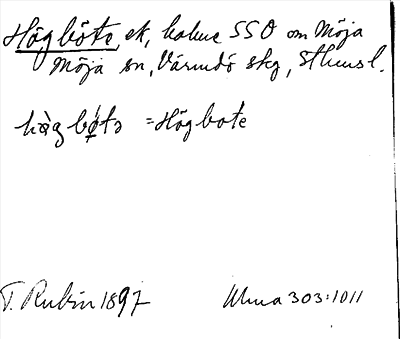 Högböte, ek, holme SSO om Möja
Möja sn, Värmdö skg, Sthmsl.
hȧg bǿtə = Högbote
T. Rubin 1897 Ulma 303:1011